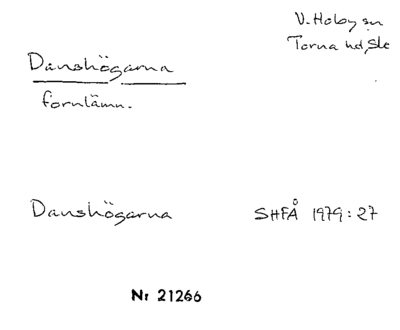 V. Hoby sn
Torna hd, Sk
Danshögarna
fornlämn.
Danshögarna
SHFÅ 1979:27
Nr 21266